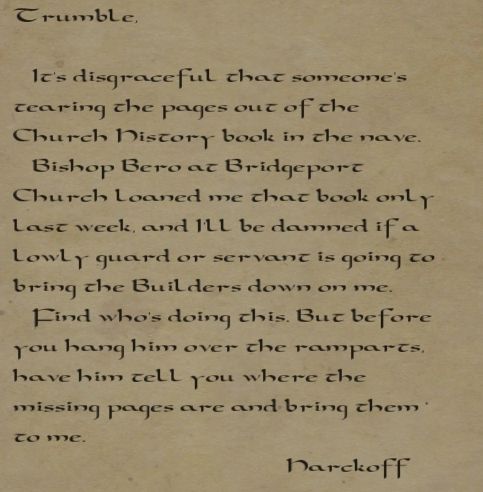 Trumble,
It's disgraceful that someone's
tearing the pages out of the
Church History book in the nave.
Bishop Bero at Bridgeport
Church loaned me that book only
last week, and I'll be damned if a
lowly guard or servant is going to
bring the Builders down on me.
Find who's doing this. But before
you hang him over the ramparts,
have him tell you where the
missing pages are and bring them
to me.
Harckoff